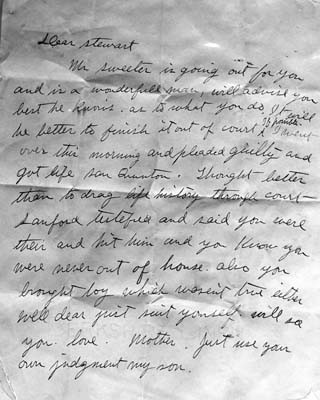 Dear Stewart
Mr Sweeter is going out for you
and is a wonderfull man, will advise you
best he knows. as to what you do it will
be better to finish it out of court if possible I went
over this morning and pleaded ghilty and
got life san Quinton. Thought better
than to drag life history through court -
Sanford testefied and said you were
their and hit him and you know you
were never out of house. also you
brought boy which wasent true either
well dear just suit yourself will so
you. love. Mother. Just use your
own judgment my son.